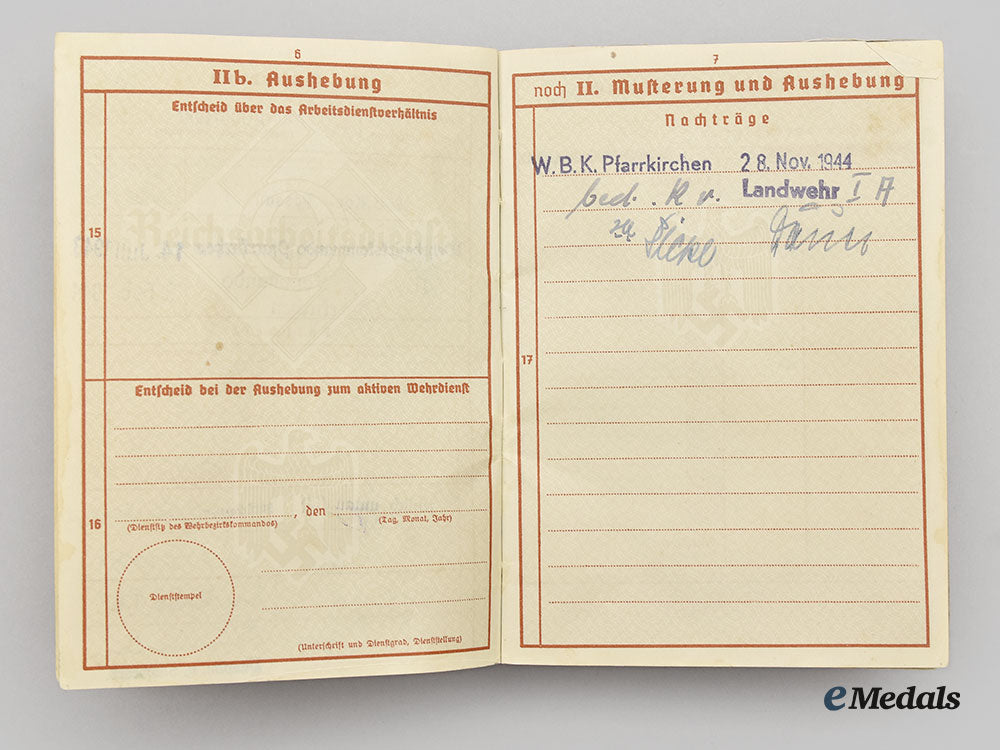 6
IIb. Aushebung
Entscheid über das Arbeitsdienstverhältnis
15
Entscheid bei der Aushebung zum aktiven Wehrdienst
16
, den
(Dienstsitz des Wehrbezirkskommandos) (Tag, Monat, Jahr)
Dienststempel
(Unterschrift und Dienstgrad, Dienststellung)
7
noch II. Musterung und Aushebung
Nachträge
W.B.K. Pfarrkirchen 28. Nov. 1944
bed. K v. Landwehr I A
17
eMedals